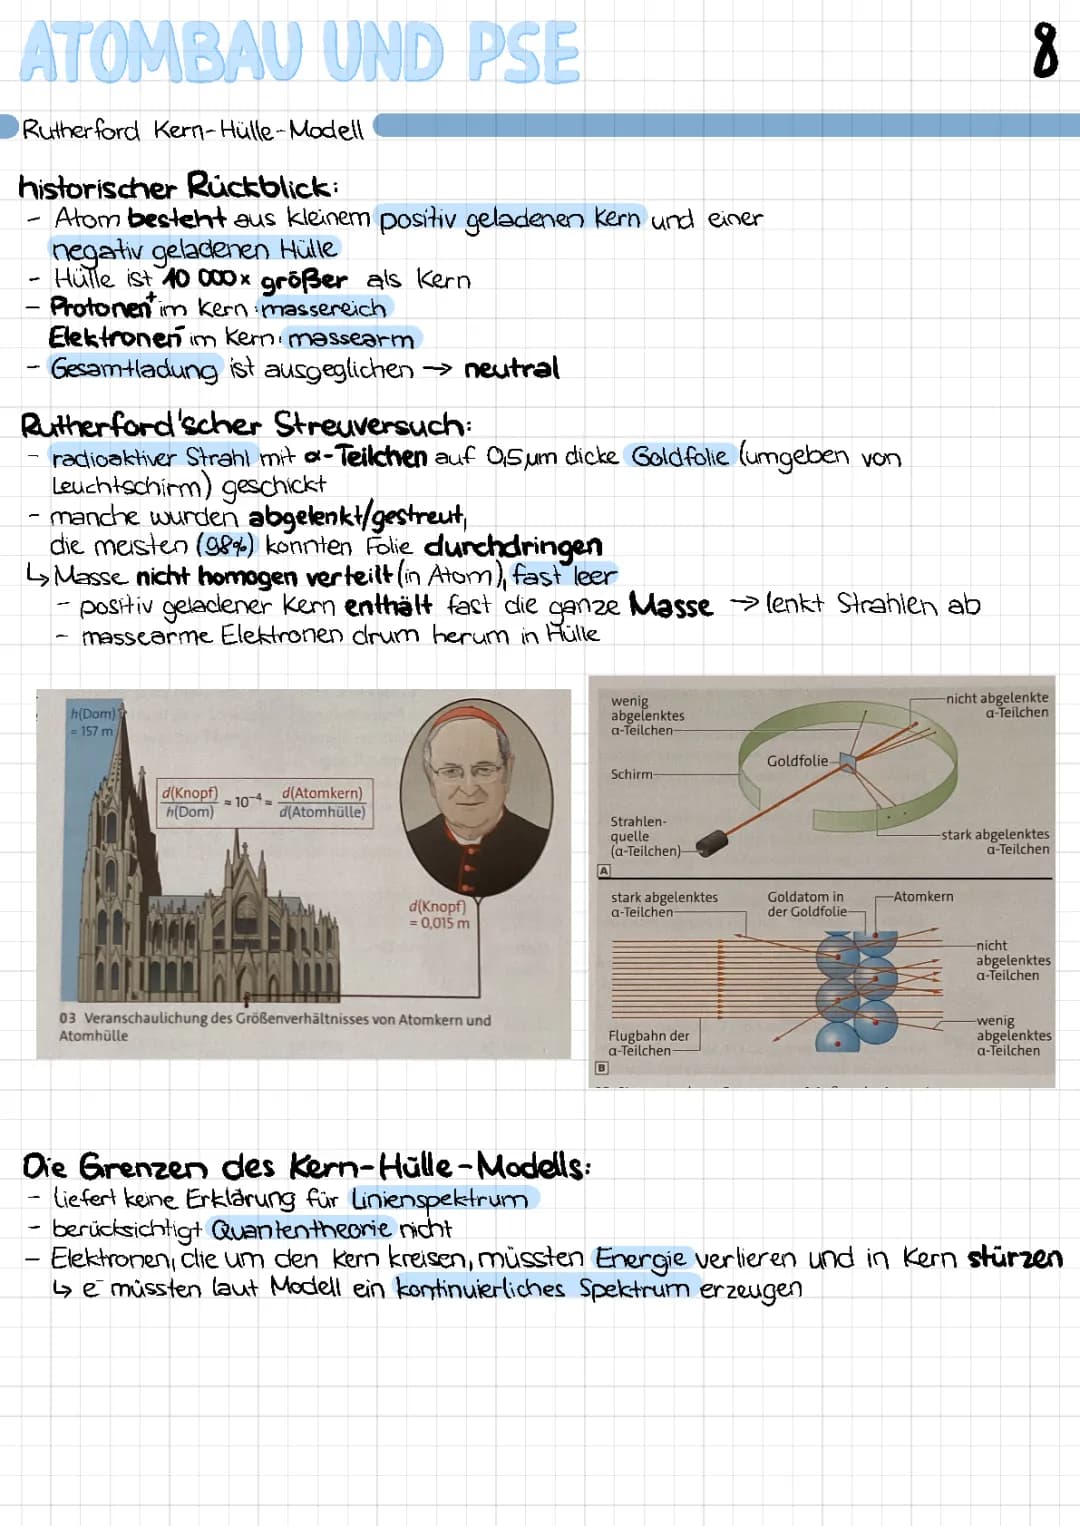 ATOMBAU UND PSE
8
Rutherford Kern-Hülle-Modell
historischer Rückblick:
- Atom besteht aus kleinem positiv geladenen Kern und einer
negativ geladenen Hülle
- Hülle ist 10 000x größer als Kern
- Protonen⁺ im Kern: massereich
Elektronen⁻ im Kern: massearm
- Gesamtladung ist ausgeglichen → neutral
Rutherford'scher Streuversuch:
- radioaktiver Strahl mit α-Teilchen auf 0,5 µm dicke Goldfolie (umgeben von
Leuchtschirm) geschickt
- manche wurden abgelenkt/gestreut,
die meisten (98%) konnten Folie durchdringen
↳ Masse nicht homogen verteilt (in Atom), fast leer
- positiv geladener Kern enthält fast die ganze Masse → lenkt Strahlen ab
- massearme Elektronen drum herum in Hülle
h(Dom)
= 157 m
d(Knopf)
h(Dom)
≈ 10⁻⁴ ≈
d(Atomkern)
d(Atomhülle)
d(Knopf)
= 0,015 m
03 Veranschaulichung des Größenverhältnisses von Atomkern und
Atomhülle
wenig
abgelenktes
α-Teilchen
nicht abgelenkte
α-Teilchen
Goldfolie
Schirm
Strahlen-
quelle
(α-Teilchen)
stark abgelenktes
α-Teilchen
A
stark abgelenktes
α-Teilchen
Goldatom in
der Goldfolie
Atomkern
nicht
abgelenktes
α-Teilchen
Flugbahn der
α-Teilchen
wenig
abgelenktes
α-Teilchen
B
Die Grenzen des Kern-Hülle-Modells:
- liefert keine Erklärung für Linienspektrum
- berücksichtigt Quantentheorie nicht
- Elektronen, die um den Kern kreisen, müssten Energie verlieren und in Kern stürzen
↳ e⁻ müssten laut Modell ein kontinuierliches Spektrum erzeugen